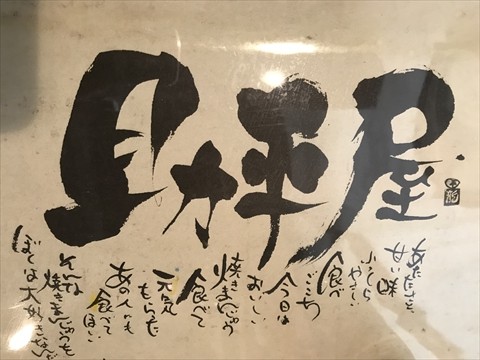 助平屋
甘い味
ふっくら
やさしい
食べ
ごこち
今日は
おいしい
焼きまんじゅう
食べて
元気
もらった
あの人にも
食べて
ほしい
そんな
焼きまんじゅうを
ぼくは大好きなんだ